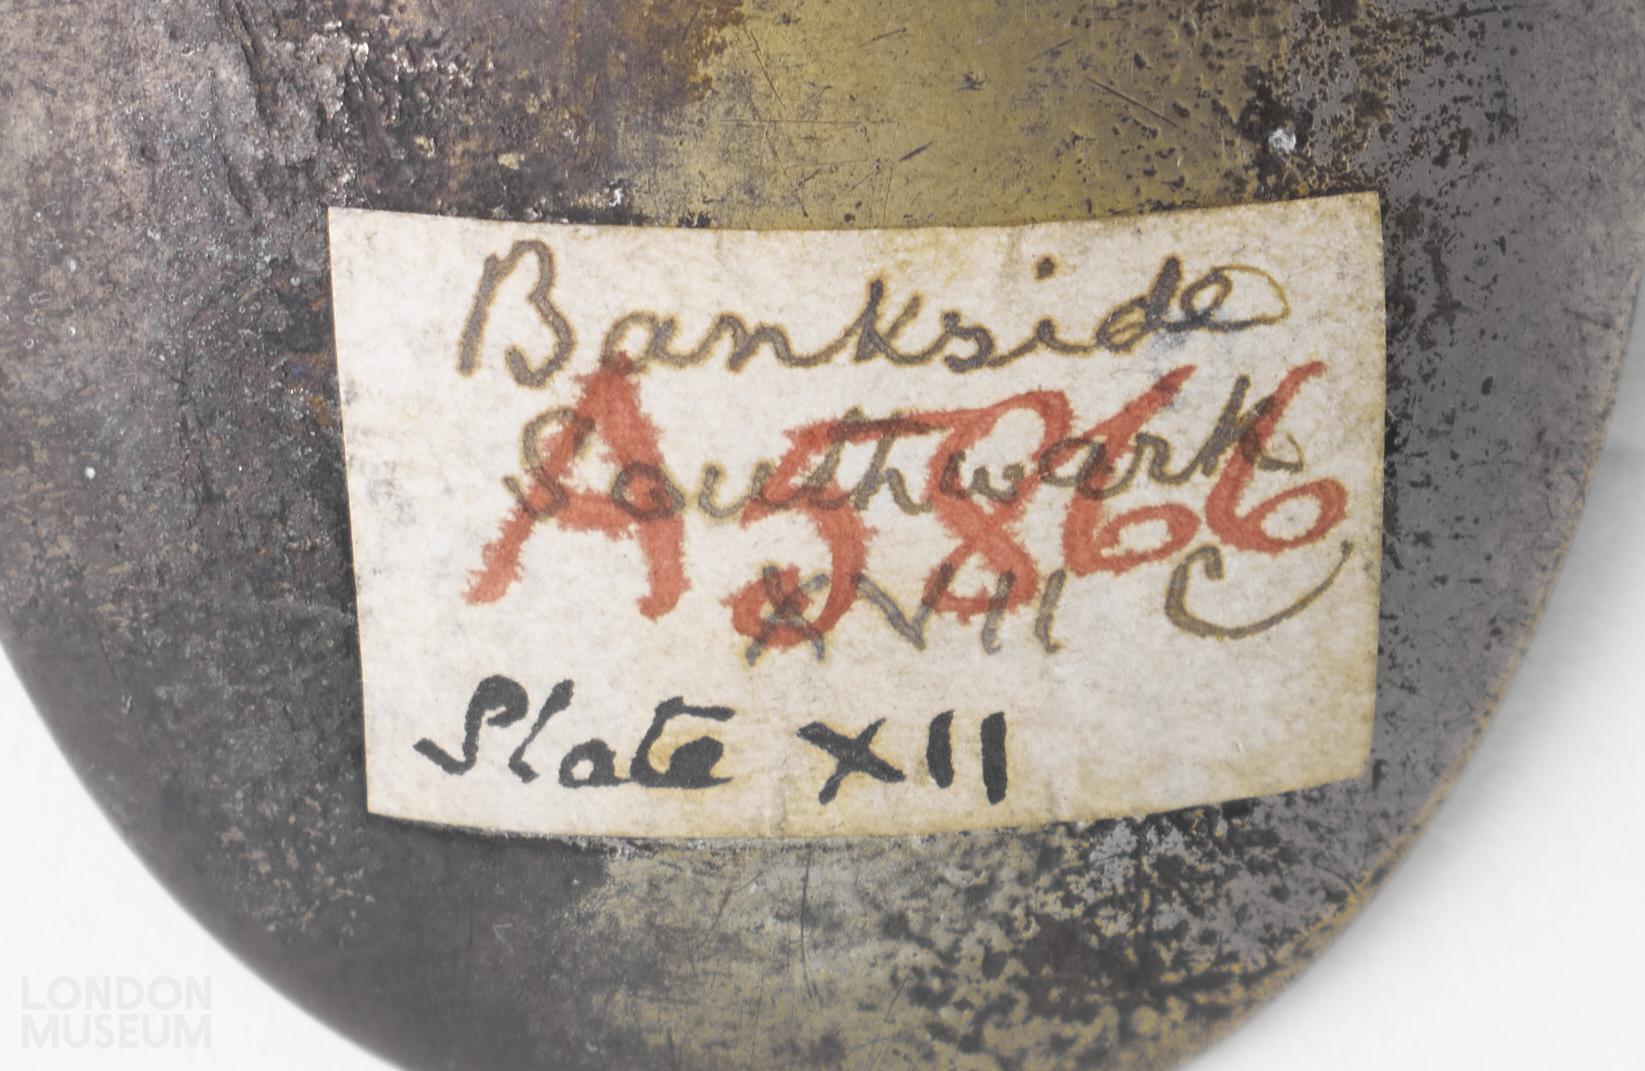 Bankside
Southwark
A5866
XVII C
Plate XII
LONDON
MUSEUM